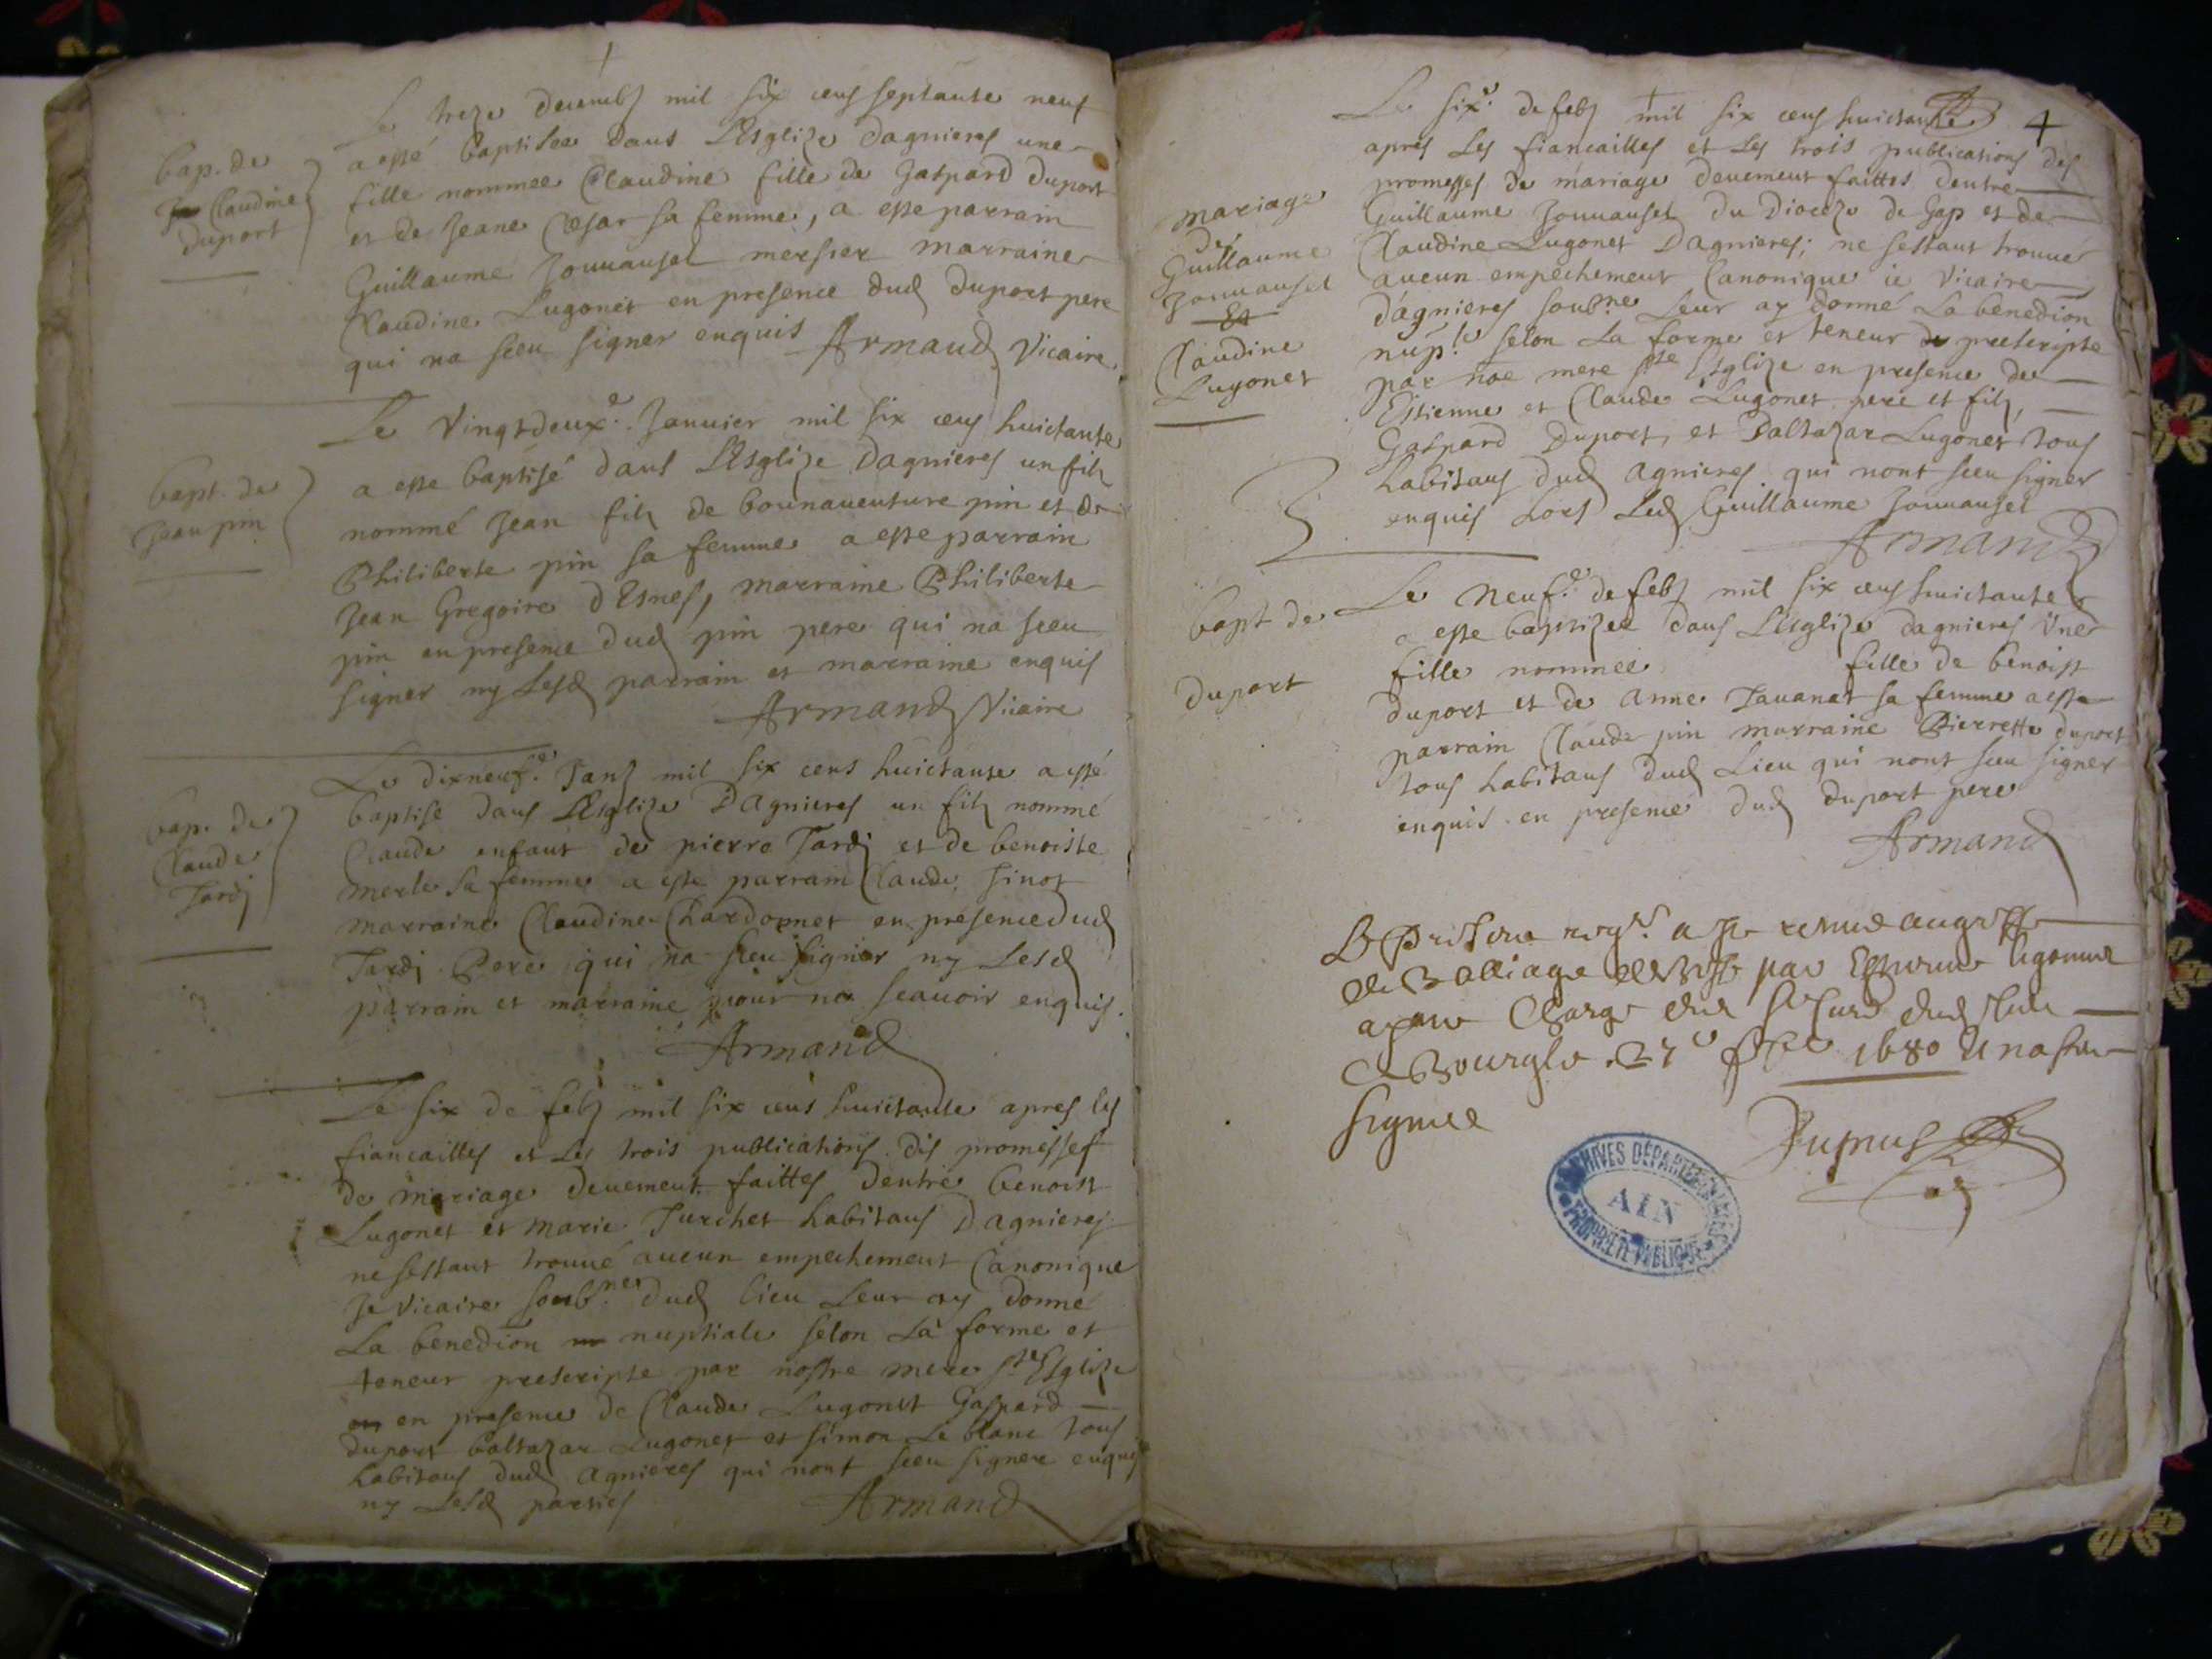 Le treze decemb mil six cens septante neuf
bap. de
Claudine
duport
a esté baptisée dans L'Esglize dagnieres une
fille nommee Claudine fille de Gaspard duport
et de Jeane Cesar sa femme, a este parrain
Guillaume Jouuansel mersier marraine
Claudine Lugonet en presence dud duport pere
qui na sceu signer enquis Armand Vicaire.
Le Vingtdeuxe. Januier mil six cens huictante
bapt. de
Jean pin
a este baptisé dans L'Esglize Dagnieres un filz
nommé Jean filz de bonnauenture pin et de
Philiberte pin sa femme a este parrain
Jean Gregoire d'Esnes, marraine Philiberte
pin en presence dud pin pere qui na sceu
signer ny Lesd parrain et marraine enquis
Armand Vicaire
Le dixneufe. Janv mil six cens huictante a esté
bap. de
Claude
Tardj
baptise dans L'Esglize Dagnieres un filz nommé
Claude enfant de pierre Tardj et de benoiste
merle sa femme a este parrain Claude sinot
marraine Claudine Chardonnet en presence dud
Tardj Pere qui na sceu signer ny Lesd
parrain et marraine pour ne scauoir enquis.
Armand
Le six de feb mil six cens huictante apres les
fiancailles et Les trois publications des promesses
de mariage deuement faittes dentre benoist
Lugonet et marie Turchet habitans Dagnieres
ne sestant trouué aucun empechement Canonique
Je vicaire soubne. dud lieu Leur ay donné
La benedion nuptiale selon La forme et
teneur prescripte par nostre mere Ste Esglize
en presence de Claude Lugonet Gaspard
duport baltazar Lugonet et simon Le blanc tous
habitans dud agnieres qui nont sceu signer enquis
ny Lesd parties Armand
4
Le sixe. de feb mil six cens huictante
apres Les fiancailles et Les trois publications des
mariage
de
Guillaume
Jouuansel
Et
Claudine
Lugonet
promesses de mariage deuement faittes dentre
Guillaume Jouuansel du Dioceze de Gap et de
Claudine Lugonet Dagnieres; ne sestant trouué
aucun empechement Canonique ie vicaire
d'agnieres soubne Leur ay donné La benedion
nup.le selon La forme et teneur prescripte
par noe mere Ste Esglize en presence de
Estienne et Claude Lugonet pere et filz,
Gaspard Duport, et Baltazar Lugonet tous
habitans dud agnieres qui nont sceu signer
enquis hors Led Guillaume Jouuansel
Armand
Le Neufe. de feb mil six cens huictante
bapt de
duport
a este baptizee dans L'Esglize dagnieres Une
fille nommée fille de benoist
duport et de anne Tauanat sa femme a este
parrain Claude pin marraine Pierrette duport
tous habitans dud Lieu qui nont sceu signer
enquis en presence dud duport pere
Armand
Le present regre. a este remis au greffe
du Balliage par Estienne Lugonnet
ayant Charge du Sr Curé dud lieu
A Bourg le 27e 1680 Et na sceu
signer
Dupuis
ARCHIVES DEPARTEMENTALES
AIN
PROPRIETE PUBLIQUE